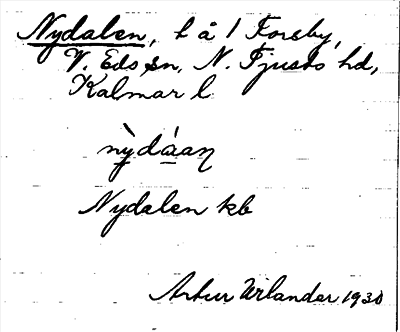 Nydalen, t å 1 Forsby,
V. Eds sn, N. Tjusts hd,
Kalmar l
nỳdáan
Nydalen kb
Artur Wilander 1930